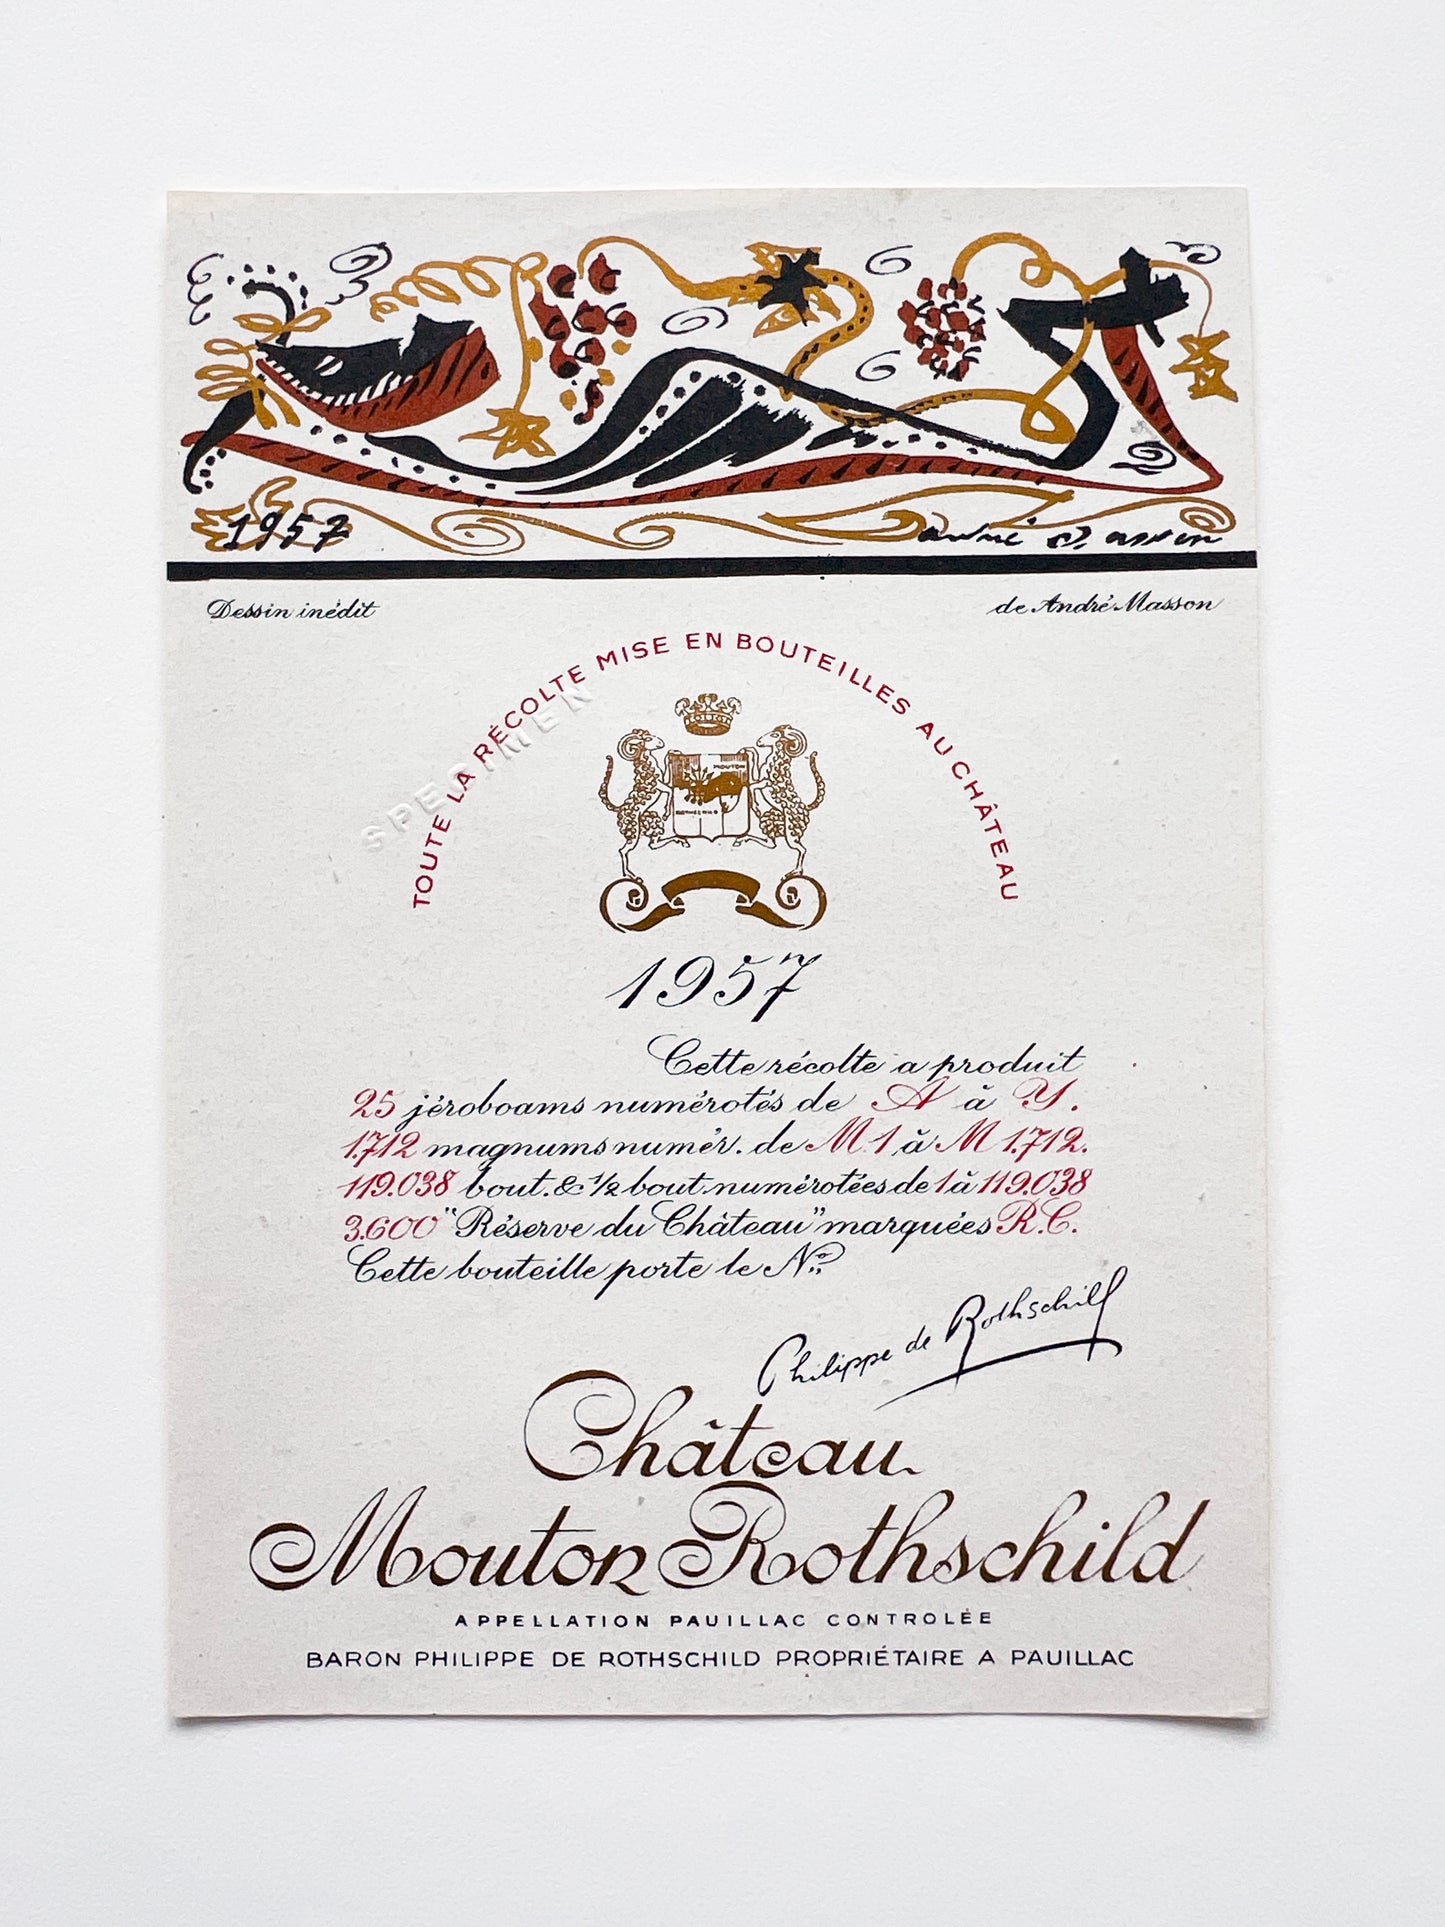 1957
André Masson
Dessin inédit de André Masson
TOUTE LA RÉCOLTE MISE EN BOUTEILLES AU CHÂTEAU
SPECIMEN
MOUTON
ROTHSCHILD
1957
Cette récolte a produit
25 jéroboams numérotés de A à Y.
1.712 magnums numér. de M 1 à M 1.712.
119.038 bout. & 1/2 bout numérotées de 1 à 119.038
3.600 "Réserve du Château" marquées R.C.
Cette bouteille porte le No
Philippe de Rothschild
Château
Mouton Rothschild
APPELLATION PAUILLAC CONTROLÉE
BARON PHILIPPE DE ROTHSCHILD PROPRIÉTAIRE A PAUILLAC